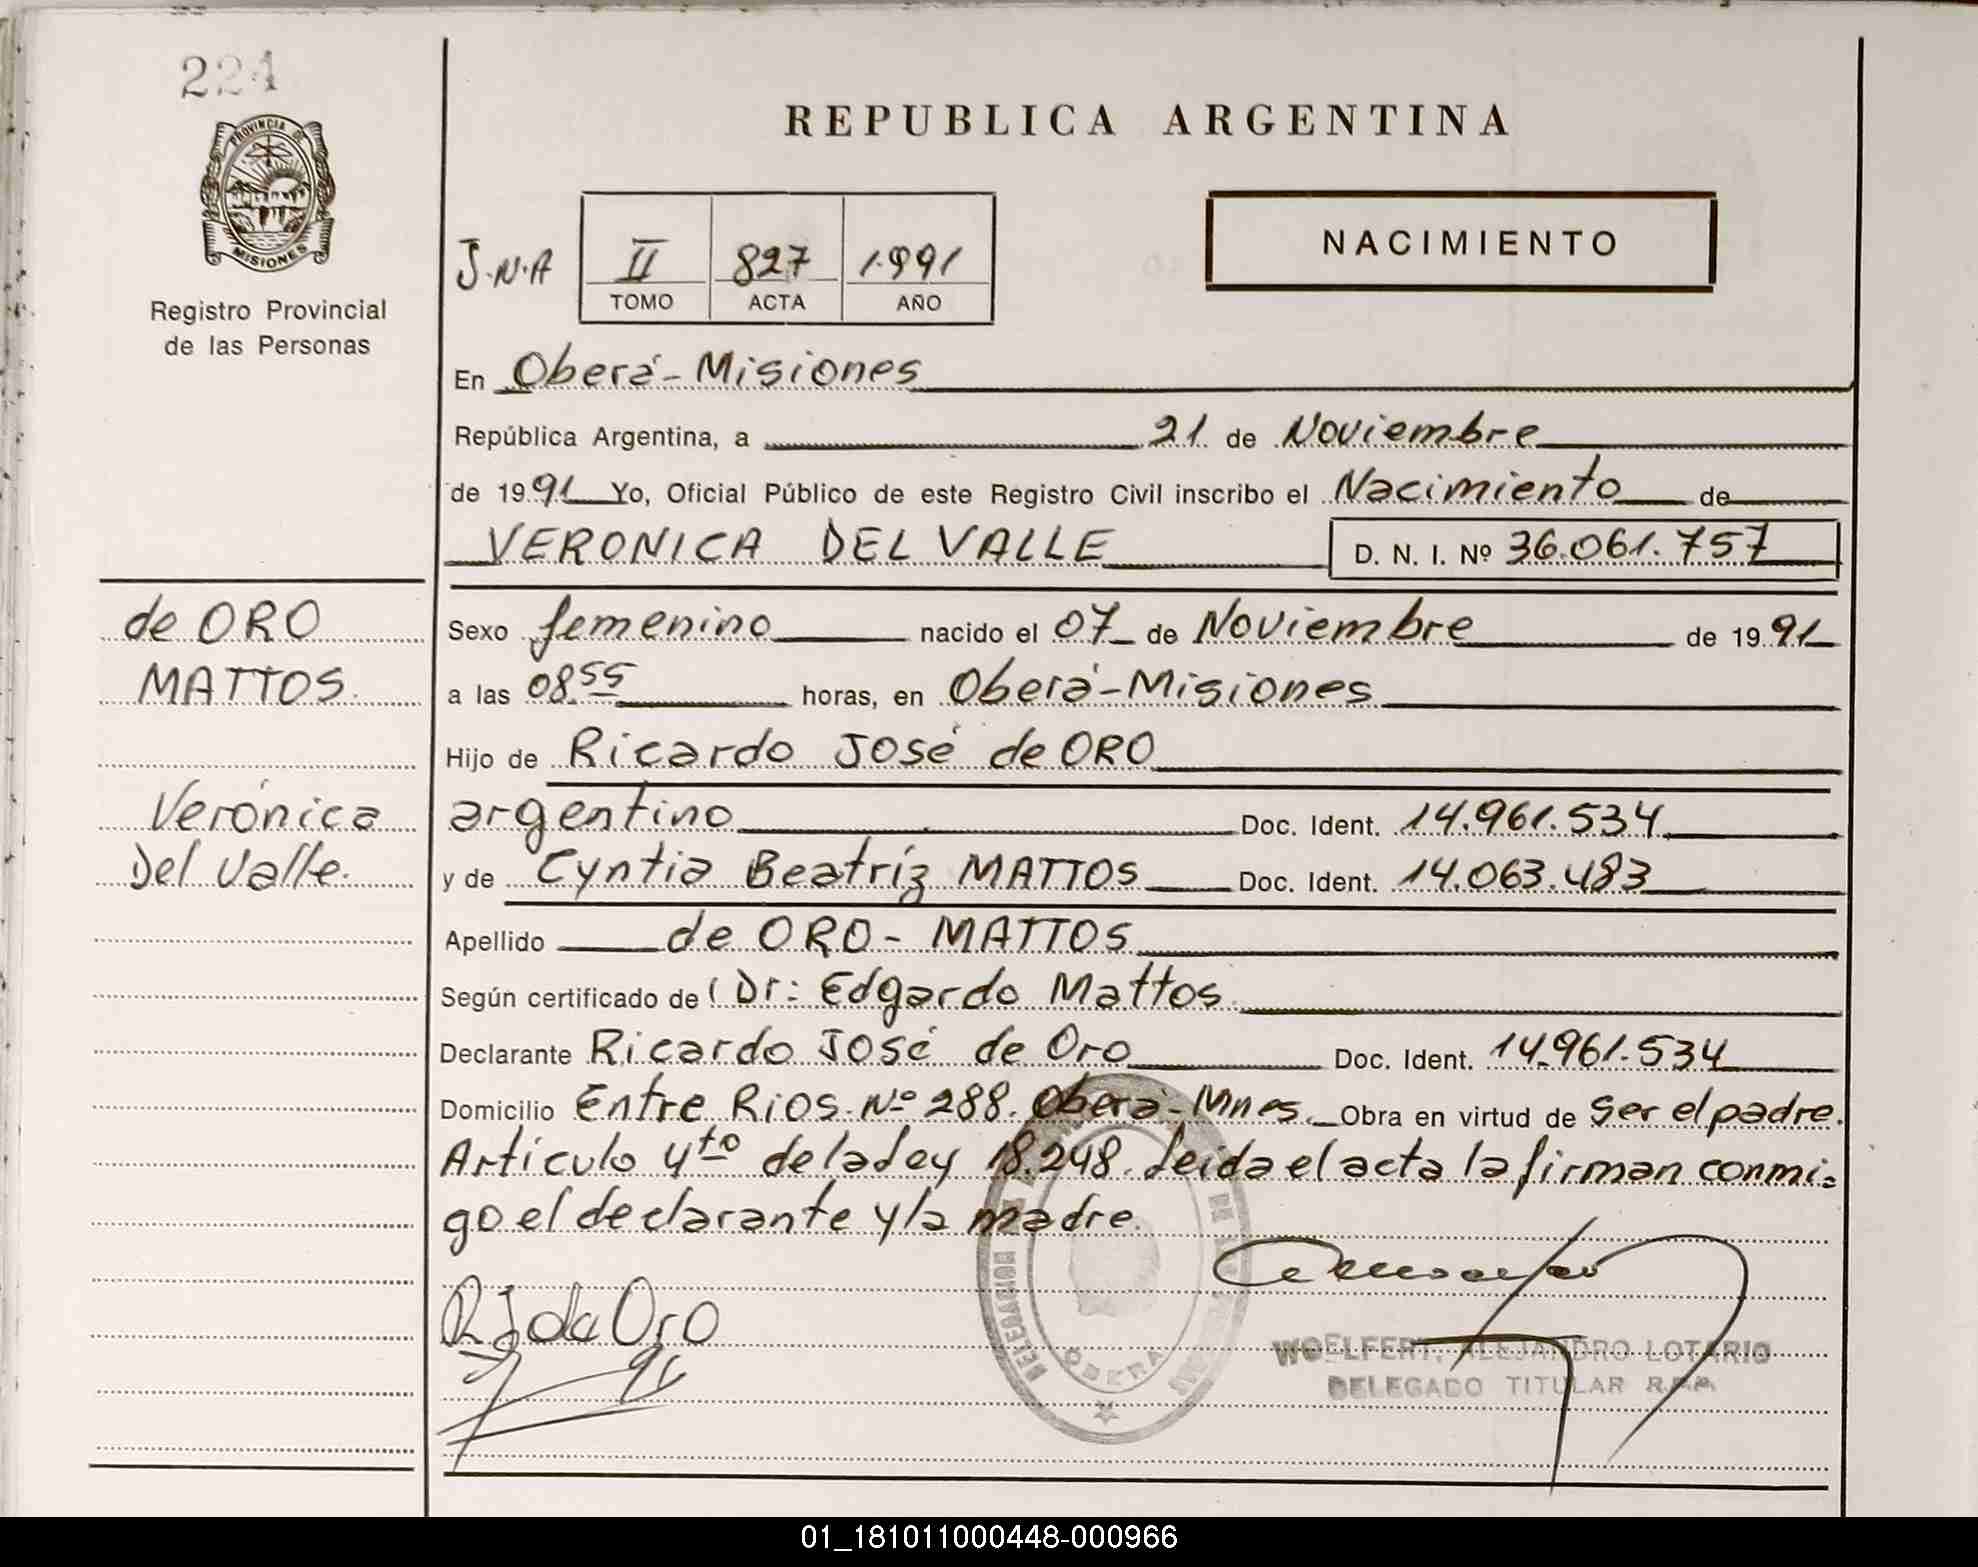 224
PROVINCIA DE
MISIONES
Registro Provincial
de las Personas
REPUBLICA ARGENTINA
J.N.A
II 827 1.991
TOMO ACTA AÑO
NACIMIENTO
En Oberá-Misiones
República Argentina, a 21 de Noviembre
de 1991 Yo, Oficial Público de este Registro Civil inscribo el Nacimiento de
VERONICA DEL VALLE D. N. I. Nº 36.061.757
de ORO
MATTOS.
Verónica
Del Valle.
Sexo femenino nacido el 07 de Noviembre de 1991
a las 08.55 horas, en Oberá-Misiones
Hijo de Ricardo José de ORO
argentino Doc. Ident. 14.961.534
y de Cyntia Beatríz MATTOS Doc. Ident. 14.063.483
Apellido de ORO - MATTOS
Según certificado de Dr: Edgardo Mattos
Declarante Ricardo José de Oro Doc. Ident. 14.961.534
Domicilio Entre Rios. Nº 288. Oberá-Mnes. Obra en virtud de ser el padre.
Artículo 4to de la Ley 18.248. Leida el acta la firman conmi-
go el declarante y la madre.
RJ de Oro
OBERA
WOELFERT, ALEJANDRO LOTARIO
DELEGADO TITULAR
01_181011000448-000966